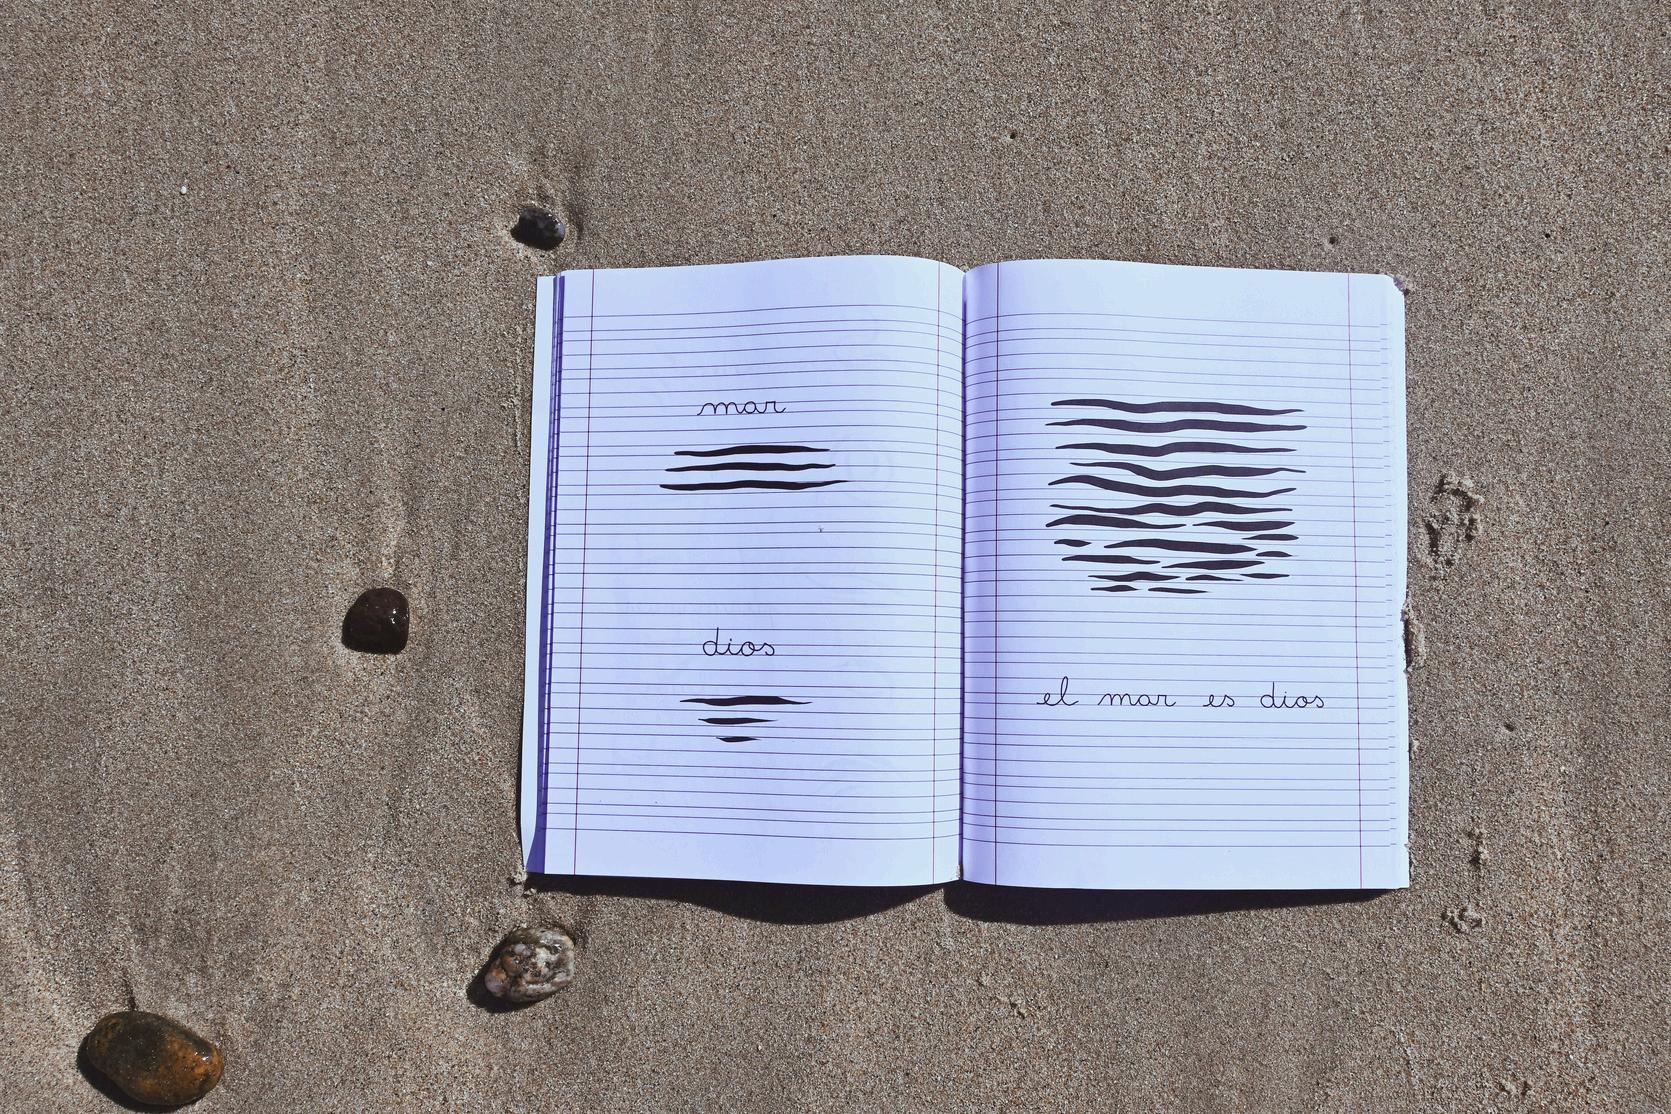 mar
dios
el mar es dios